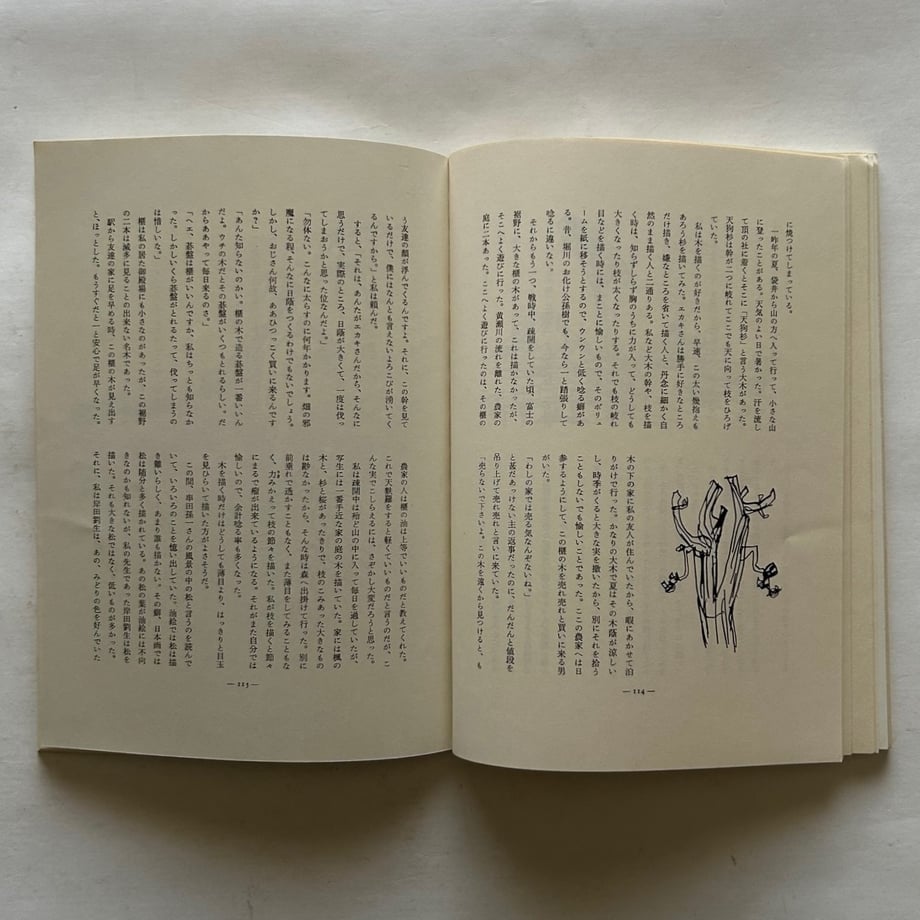 に焼つけてしまっている。
一昨年の夏、袋井から山の方へ入って行って、小さな山
に登ったことがある。天気のよい日で暑かった。汗を流し
て頂の社に着くとそこに「天狗杉」と言う大木があった。
天狗杉は幹が二つに岐れてここでも天に向って枝をひろげ
ていた。
私は木を描くのが好きだから、早速、この太い幾抱えも
あろう杉を描いてみた。エカキさんは勝手に好きなところ
だけ描き、嫌なところを省いて描く人と、丹念に細かく自
然のまま描く人と二通りある。私など大木の幹や、枝を描
く時は、知らずしらず胸のうちに力が入って、どうしても
大きくなったり枝が太くなったりする。それでも枝の岐れ
目などを描く時には、まことに愉しいもので、そのボリュ
ームを紙に移そうとするので、ウンウンと低く唸る癖があ
る。昔、堀川のお化け公孫樹でも、今なら一と踏張りして
唸るに違いない。
それからもう一つ、戦時中、疎開をしていた頃、富士の
裾野に、大きな榧の木があって、これは描かなかったが、
そこへよく遊びに行った。黄瀬川の流れを離れた、農家の
庭に二本あった。ここへよく遊びに行ったのは、その榧の
木の下の家に私の友人が住んでいたから、暇にあかせて泊
りがけで行った。かなりの大木で夏はその木蔭が涼しい
し、時季がくると大きな実を撒いたから、別にそれを拾う
こともしないでも愉しいことであった。ここの農家へは日
参するようにして、この榧の木を売れ売れと買いに来る男
がいた。
「わしの家では売る気なんぞないね。」
と甚だあっけない主の返事だったのに、だんだんと値段を
吊り上げて売れ売れと言いに来ていた。
「売らないで下さいよ。この木を遠くから見つけると、も
— 114 —
う友達の顔が浮んでくるんですよ。それに、この幹を見て
いるだけで、僕にはなんとも言えないよろこびが湧いてく
るんですから。」と私は頼んだ。
すると、「それは、あんたがエカキさんだから、そんなに
思うだけで、実際のところ、日蔭が大きくて、一度は伐っ
てしまおうかと思った位なんだよ。」
「勿体ない。こんなに太らすのに何年かかります。畑の邪
魔になる程、そんなに日蔭をつくるわけでもないでしょう。
しかし、おじさん何故、ああひつっこく買いに来るんです
か？」
「あんた知らないのかい。榧の木で造る碁盤が一番いいん
だよ。ウチの木だとその碁盤がいくつもとれるらしい。だ
からああやって毎日来るのさ。」
「ヘェ、碁盤は榧がいいんですか、私はちっとも知らなか
った。しかしいくら碁盤がとれるたって、伐ってしまうの
は惜しいな。」
榧は私の居た御殿場にも小さなのがあったが、この裾野
の二本は滅多に見ることの出来ない名木であった。
駅から友達の家に足を早める時、この榧の木が見え出す
と、ほっとした。もうすぐだと一と安心で足が早くなった。
農家の人は榧の油は上等でいいものだと教えてくれた。
これで天麩羅をすると軽くていいものだと言うのだが、こ
んな実でこしらえるには、さぞかし大変だろうと思った。
私は疎開中は殆ど山の中に入って毎日を過していたが、
写生には一番手近な家の庭の木を描いていた。家には楓の
木と、杉と桜があったきりで、枝のこみあった大きなもの
は尠なかったから、そんな時は森へ出掛けて行った。別に
前垂れで透かすこともなく、また薄目をしてみることもな
く、力みかえって枝の節々を描いた。私が枝を描くと節々
にまるで瘤が出来ているようになる。それがまた自分では
愉しいので、余計唸る事も多くなった。
木を描く時だけはどうしても薄目より、はっきりと目玉
を見ひらいて描いた方がよさそうだ。
この間、串田孫一さんの風景の中の松と言うのを読んで
いて、いろいろのことを憶い出していた。油絵では松は描
き難いらしく、あまり誰も描かない。その癖、日本画では
松は随分と多く描かれている。あの松の葉が油絵には不向
きなのかも知れないが、私の先生であった岸田劉生は松を
描いた。それも大きな松ではなく、低いものが多かった。
それに、私は岸田劉生は、あの、みどりの色を好んでいた
— 115 —